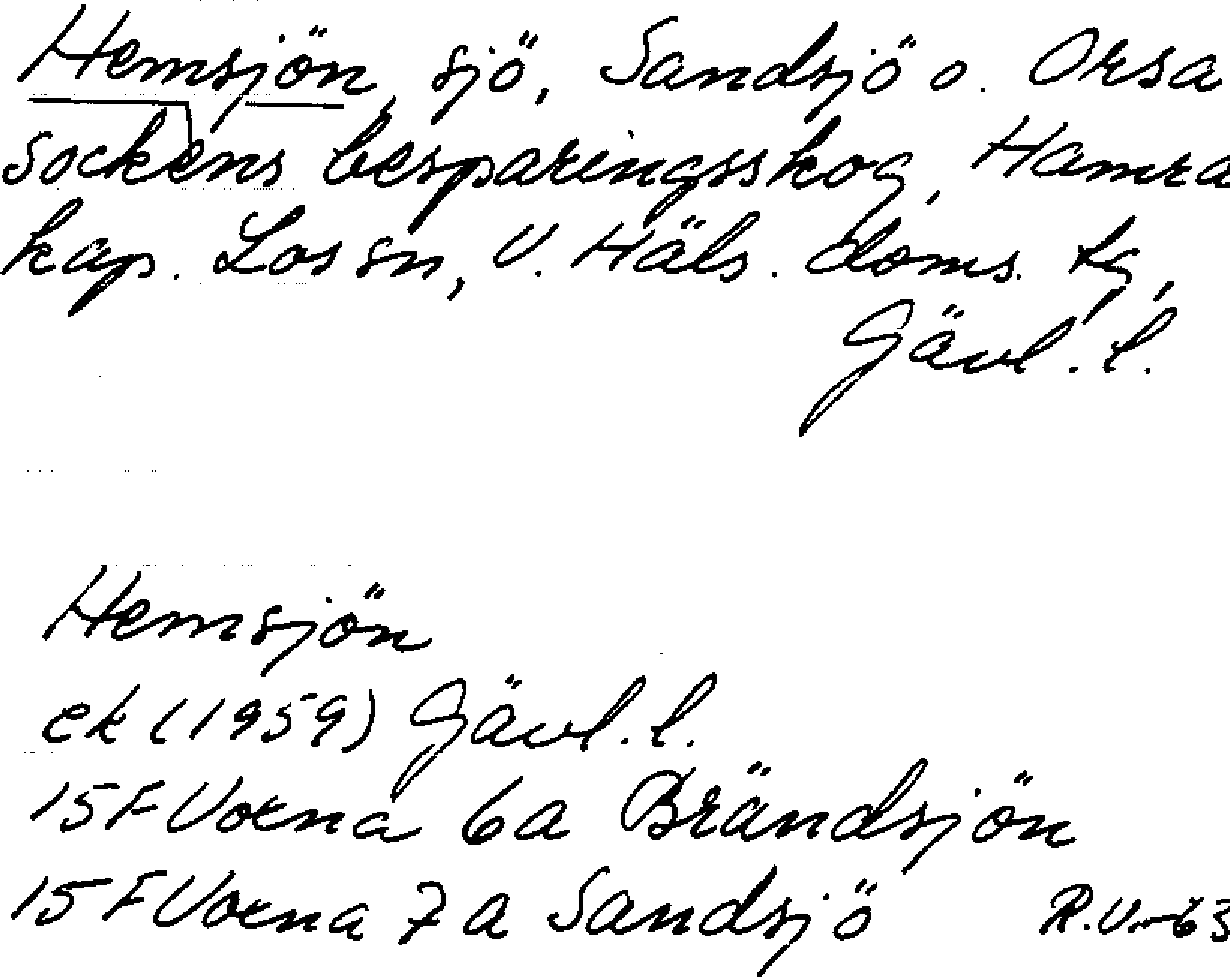 Hemsjön, sjö, Sandsjö o. Orsa
sockens besparingsskog, Hamra
kap. Los sn, V. Häls. doms. tg,
Gävl. l.
Hemsjön
ek (1959) Gävl. l.
15F Voxna 6a Brändsjön
15F Voxna 7a Sandsjö R.V.-63